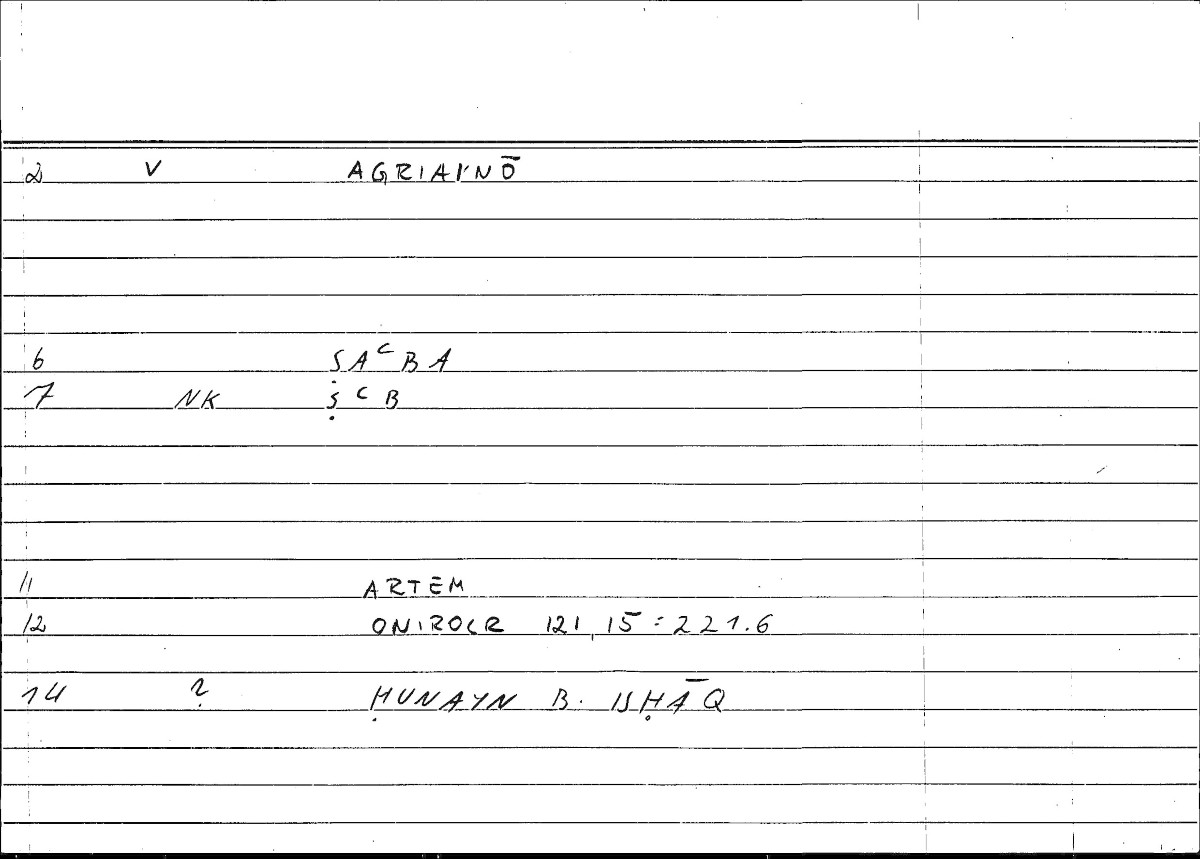 2 V AGRIAI'NŌ
6 ṢAᶜBA
7 NK ṣᶜB
11 ARTEM
12 ONIROCR 121,15 = 221.6
14 ? ḤUNAYN B. ISḤĀQ